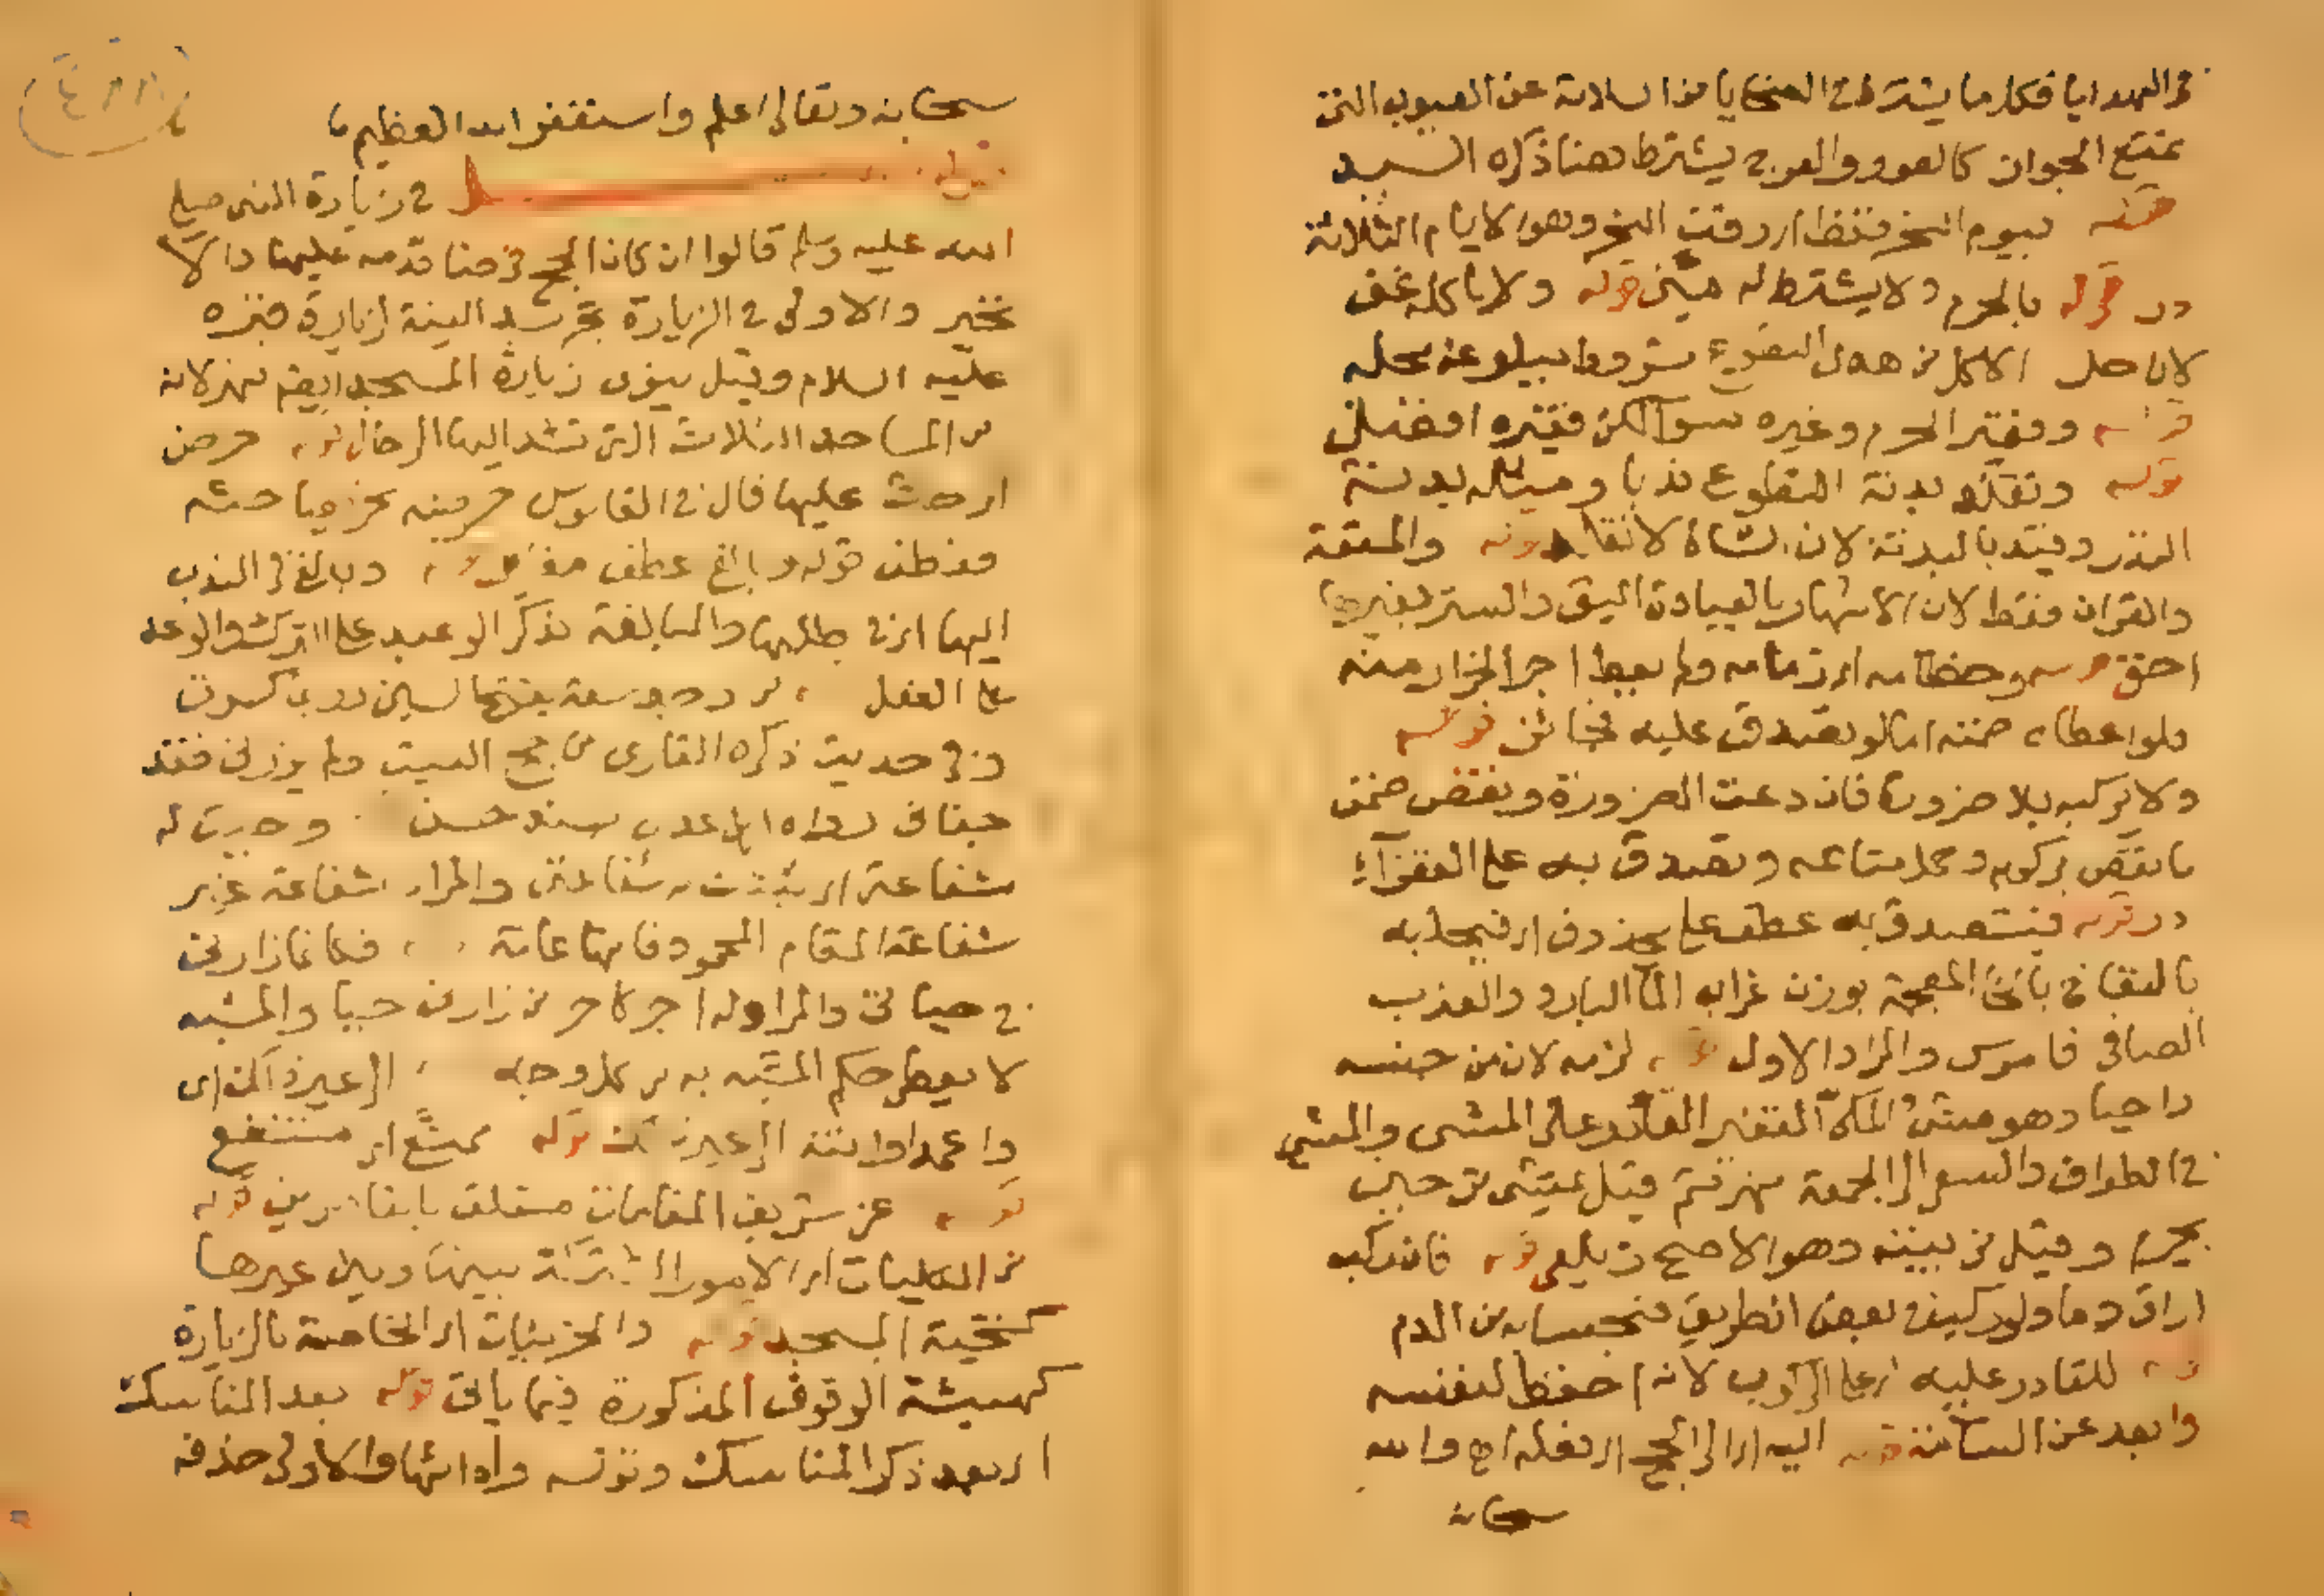 في الهدايا فكل ما يشترط في الضحايا من السلامة عن العيوب التي
تمنع الجواز كالعور والعرج يشترط هنا ذكره السيد
قوله بيوم النحر فقط اي وقت النحر وهو الايام الثلاثة
در قوله بالحرم ولا يشترط له منى قوله ولا ياكله غني
لان حل الاكل من هدي التطوع مشروط ببلوغه محله
قوله وفقير الحرم وغيره سوا لكن فقيره افضل
قوله وتقلد بدنة التطوع ندبا ومثله بدنة
النذر وقيد بالبدنة لان الشاة لا تقلد قوله والمتعة
والقران فقط لان الاشتهار بالعبادة اليق والستر بغيرها
احق قوله وخطامه اي زمامه ولم يعط اجر الجزار منه
ولو اعطاه ضمنه اما لو تصدق عليه فجائز قوله
ولا يركبه بلا ضرورة فان دعت الضرورة ونقص ضمن
ما نقص بركوبه وحمل متاعه وتصدق به على الفقراء
در قوله فيتصدق به عطف على محذوف اي فيحلبه
بالنقاخ بالخا المعجمة بوزن غراب الما البارد والعذب
الصافي قاموس والمراد الاول قوله لزمه لان من جنسه
واجبا وهو مشي المكي الفقير القادر على المشي والمشي
في الطواف والسعي الى الجمعة نهر قيل يمشي من حيث
يحرم وقيل من بيته وهو الاصح زيلعي قوله فان ركب
اراق دما ولو ركب في بعض الطريق فبحسابه من الدم
قوله للقادر عليه اي على الركوب لانه احفظ لنفسه
وابعد عن السآمة قوله اليه اي الى الحج اي بفعله اھ والله
سبحانه
سبحانه وتعالى اعلم واستغفر الله العظيم
في زيارة النبي صلى
الله عليه وسلم قالوا ان كان الحج فرضا قدمه عليها والا
تخير والاولى في الزيارة تجريد النية لزيارة قبره
عليه السلام وقيل ينوي زيارة المسجد ايضا نهر لانه
من المساجد الثلاث التي تشد اليها الرحال قوله حرض
اي حث عليها قال في القاموس حرضه تحريضا حثه
فعطف قوله وبالغ عطف قوله وبالغ في الندب
اليها اي في طلبها والمبالغة بذكر الوعيد على الترك والوعد
على الفعل من وجد سعة بفتح السين
وفي حديث ذكره القاري من حج البيت ولم يزرني فقد
جفاني رواه ابن عدي بسند حسن وجبت له
شفاعتي اي ثبتت شفاعتي والمراد شفاعة غير
شفاعة المقام المحمود فانها عامة فكانما زارني
في حياتي والمراد له اجر كاجر من زارني حيا والمشبه
لا يعطى حكم المشبه به من كل وجه الى غير ذلك اي
واعمد او انته الى غير ذلك قوله ممتع اي منتفع
قوله عن شريف المقامات متعلق قوله
من الكليات اي الامور المشتركة بينها وبين غيرها
كتحية المسجد قوله والجزئيات اي الخاصة بالزيارة
كهيئة الوقوف المذكورة فيما ياتي قوله بعد المناسك
اي بعد ذكر المناسك وقوله وادائها والاولى حذفه